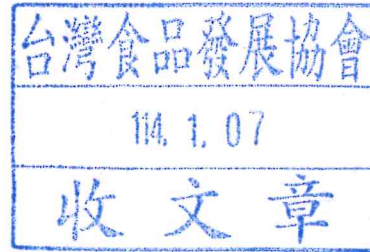 台灣食品發展協會
114. 1. 07
收文章